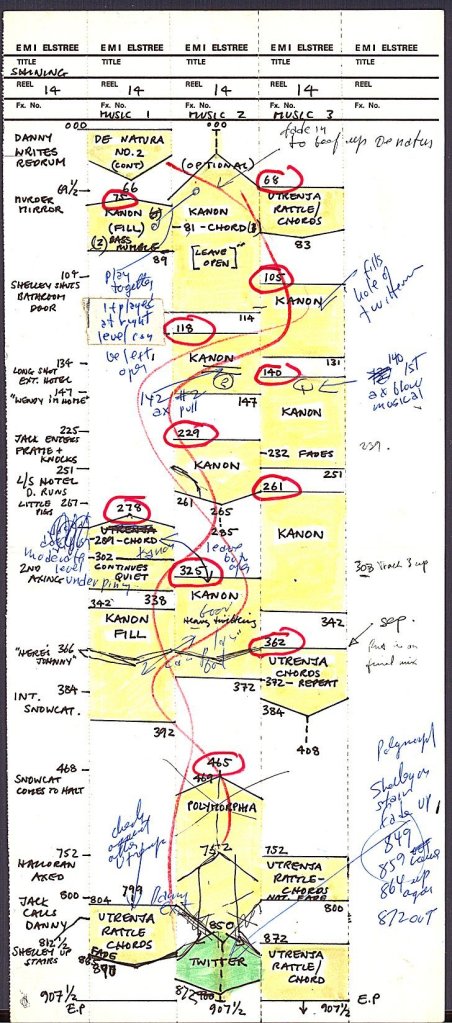 EMI ELSTREE EMI ELSTREE EMI ELSTREE EMI ELSTREE
TITLE TITLE TITLE TITLE
SHINING
REEL 14 REEL 14 REEL 14 REEL
Fx. No. Fx. No. Fx. No. Fx. No.
MUSIC 1 MUSIC 2 MUSIC 3
000 000
DANNY
WRITES
REDRUM
DE NATURA
NO.2
(CONT)
(OPTIONAL)
fade in
to beef up De natura
69½
MURDER
MIRROR
66
75
KANON
(FILL)
BASS
RUMBLE
89
KANON
81 - CHORD
[LEAVE
OPEN]
68
UTRENJA
RATTLE/
CHORDS
83
104
SHELLEY SHUTS
BATHROOM
DOOR
play
together
if played
at right
level can
be left
open
114
118
KANON
105
KANON
131
fills
hole of
twittern
134
LONG SHOT
EXT. HOTEL
147
"WENDY IM HOME"
142 #2
ax pull
147
140
KANON
140
1st
ax blow
musical
225
JACK ENTERS
FRAME +
KNOCKS
251
L/S HOTEL
D. RUNS
229
KANON
261
265
285
232 FADES
251
239.
267
LITTLE
PIGS
278
UTRENJA
289 - CHORD
302
CONTINUES
QUIET
338
moderate
level
underpin
261
KANON
342
2ND
AXING
342
leave
open
325
KANON
Good
Heavy twitterings
308 Track 3 up
366
"HERE'S
JOHNNY"
KANON
FILL
392
372
362
UTRENJA
CHORDS
372 - REPEAT
384
408
sep.
final mix
384
INT.
SNOWCAT.
468
SNOWCAT
COMES TO HALT
465
469
POLYMORPHIA
752
Polymorph
Shelley on
stair
fade up
849
859
864 up
again
872 out
752
HALLORAN
AXED
check
752
UTRENJA
RATTLE-
CHORDS
NAT. FADE
800
800
JACK
CALLS
DANNY
812½
SHELLEY UP
STAIRS
799
804
UTRENJA
RATTLE
CHORDS
FADE
885
890
850
TWITTER
872
900
872
UTRENJA
RATTLE/
CHORD
907½
E.P
907½
907½
E.P